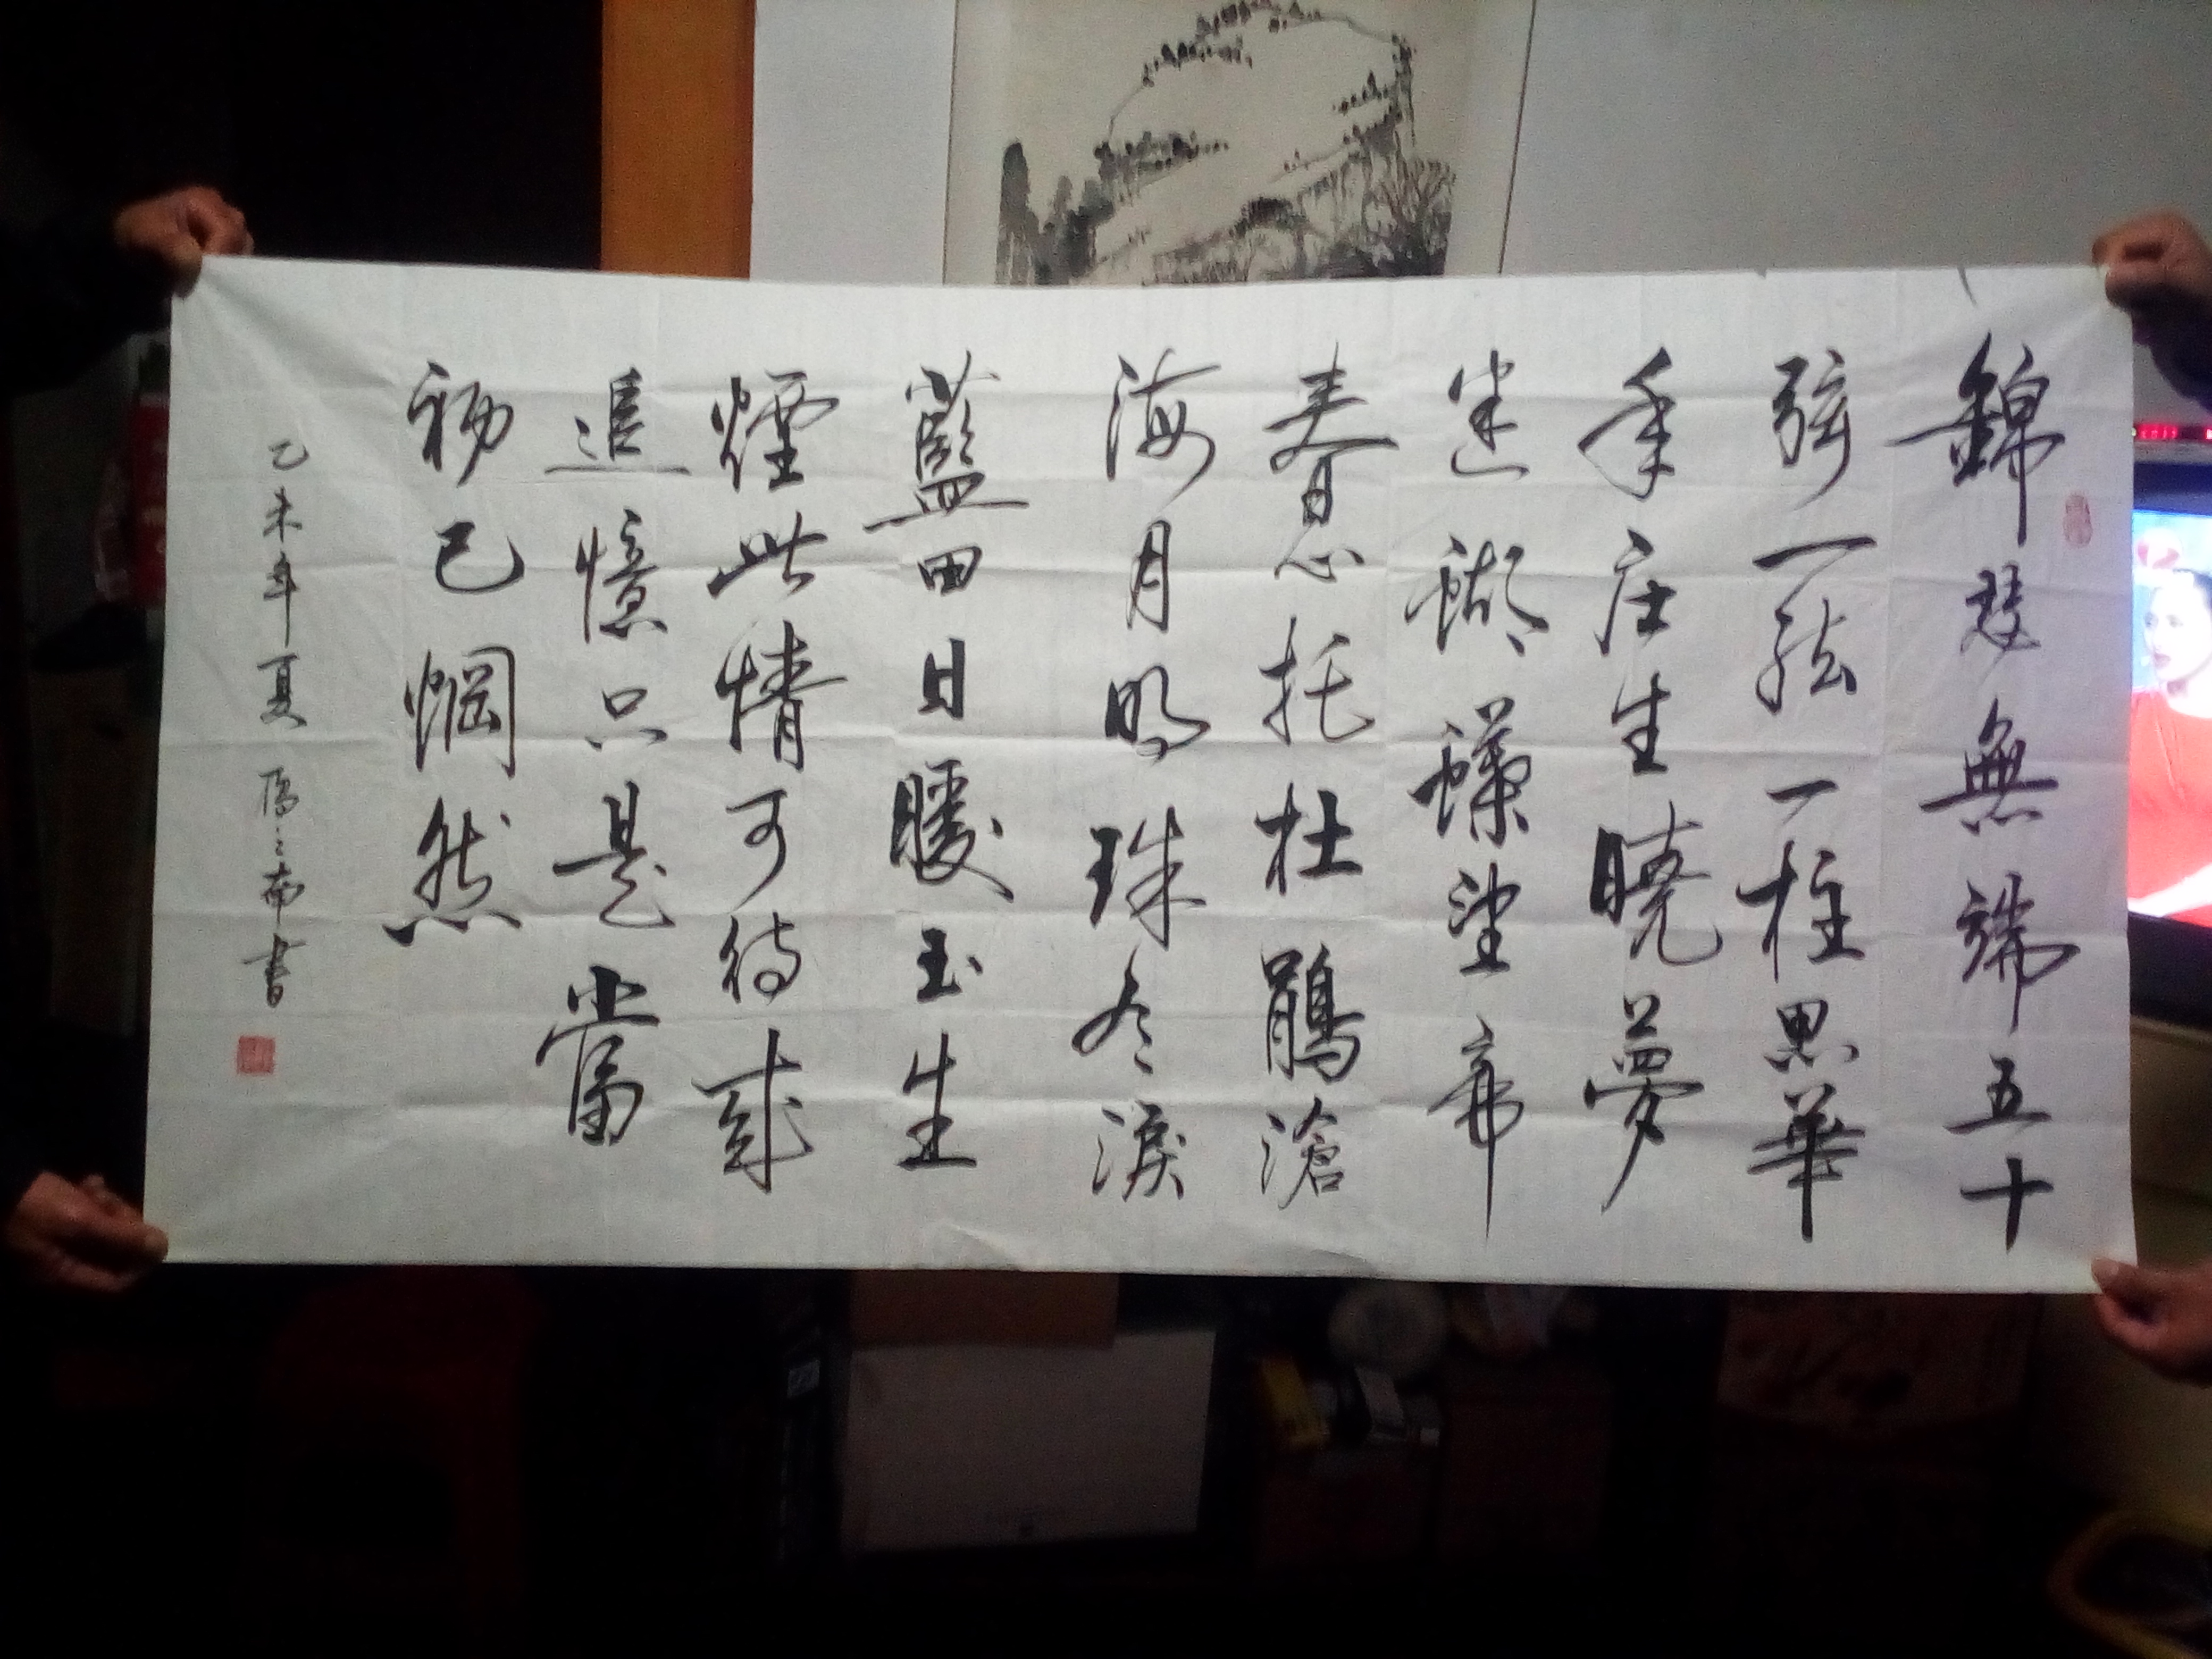 錦瑟無端五十
弦一弦一柱思華
年庄生曉夢
迷蝴蝶望帝
春心托杜鵑滄
海月明珠有淚
藍田日暖玉生
煙此情可待成
追憶只是當
初已惘然
乙未年夏 南書